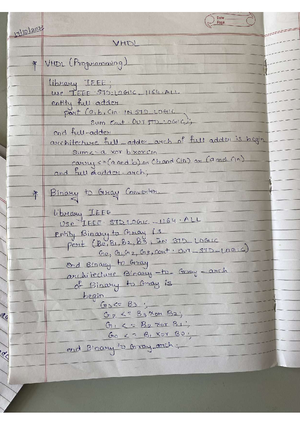 VHDL
* VHDL (Programming)
Library IEEE;
use IEEE STD-LOGIC_1164.ALL
entity full adder
port (a,b,cin IN STD_LOGIC
sum out OUT STD_LOGIC);
end full-adder
architecture full_adder_arch of full adder is begin
sum <= a xor b xor cin
carry <= (a and b) or (b and cin) or
end full adder_arch,
* Binary to Gray
Library IEEE
use IEEE STD-LOGIC-1164-ALL
Entity Binary to Gray is
port (B0, B1, B2, B3 IN STD LOGIC
G0, G1, G2, G3
End Binary to Gray
architecture Binary-to-Gray-arch
of Binary to Gray is
begin
G3 <= B3;
G2 <= B3 xor B2;
G1 <= B2 xor B1;
G0 <= B1 xor B0;
end Binary to Gray arch;